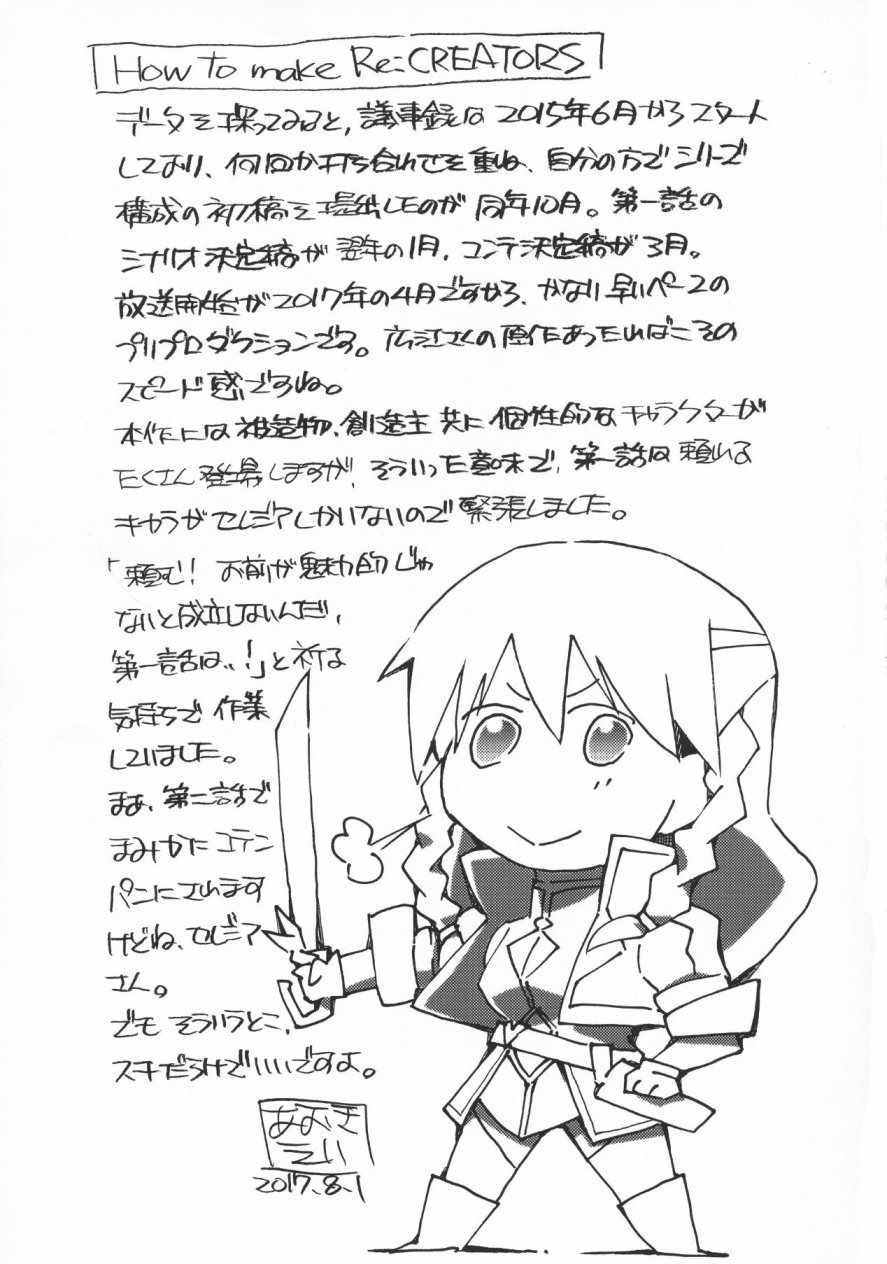 How to make Re:CREATORS
データを探ってみると、議事録は2015年6月からスタート
しており、何回か打ち合わせを重ね、自分の方でシリーズ
構成の初稿を提出したのが同年10月。第一話の
シナリオ決定稿が翌年の1月、コンテ決定稿が3月。
放送開始が2017年の4月ですから、かなり早いペースの
プリプロダクションです。広江さんの原作あったればこその
スピード感ですね。
本作には被造物、創造主共に個性的なキャラクターが
たくさん登場しますが、そういった意味で、第一話は頼れる
キャラがセレジアしかいないので緊張しました。
「頼む！お前が魅力的じゃ
ないと成立しないんだ、
第一話は、、！」と祈る
気持ちで作業
していました。
まあ、第二話で
まみかにコテン
パンにされます
けどね、セレジア
さん。
でもそういうとこ、
スキだらけでいいですよ。
あおき
えい
2017.8.1